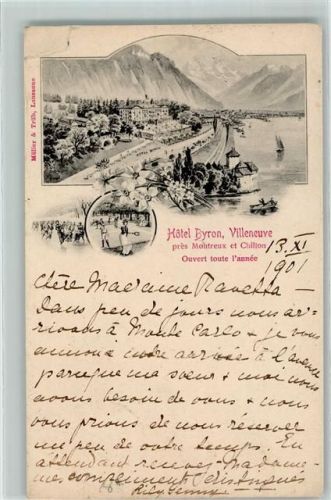 Müller & Trüb, Lausanne
Hôtel Byron, Villeneuve
près Montreux et Chillon
Ouvert toute l'année
13. XI
1901
Chère Madame
Dans peu de jours nous ar-
rivons à Monte Carlo & je vous
annonce notre arrivée à l'avance
parceque ma sœur & moi nous
avons besoin de vous & nous
vous prions de nous réserver
un peu de votre temps. En
attendant recevez Madame
mes compliments distingués